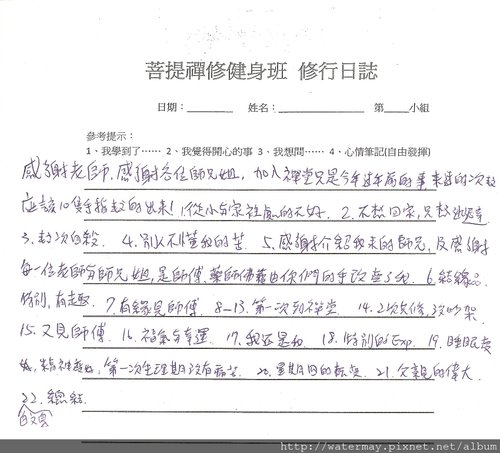 菩提禪修健身班 修行日誌
日期：________ 姓名：____________ 第_____小組
參考提示：
1、我學到了…… 2、我覺得開心的事 3、我想問…… 4、心情筆記(自由發揮)
感謝老師，感謝各位師兄姐，加入禪堂只是今年過年前的事 來過的次數
應該10隻手指數的出來！ 1.從小 的 2. 不想回家，只想
3. 次自殺. 4. 別人不懂我的苦 5. 感謝介紹我來的師兄，及感謝
每一位老師 師兄姐，是師傅、藥師佛藉由你們的手改變了我. 6. 結緣品
特別，有趣. 7. 有緣見師傅. 8-13. 第一次到禪堂 14. 2次共修，沒吵架.
15. 又見師傅. 16. 福氣與幸運. 17. 我還是我 18. 特別的Exp. 19. 睡眠
精神 ，第一次生理期沒有痛苦. 20. 星期四的 21. 父親的偉大.
22. 總結.
http://watermay.pixnet.net/album